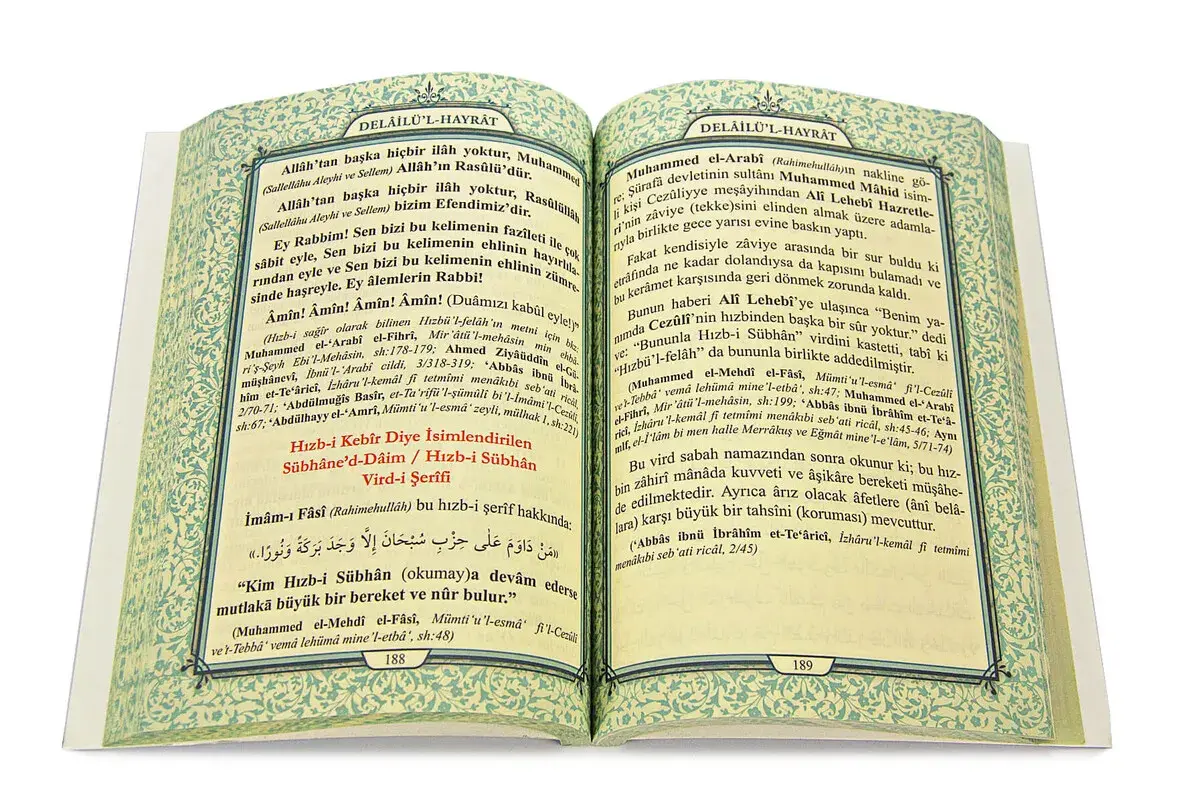 DELÂİLÜ’L-HAYRÂT
Allâh’tan başka hiçbir ilâh yoktur, Muhammed
(Sallellâhu Aleyhi ve Sellem) Allâh’ın Rasûlü’dür.
Allâh’tan başka hiçbir ilâh yoktur, Rasûlüllâh
(Sallellâhu Aleyhi ve Sellem) bizim Efendimiz’dir.
Ey Rabbim! Sen bizi bu kelimenin fazîleti ile çok
sâbit eyle, Sen bizi bu kelimenin ehlinin hayırlıla-
rından eyle ve Sen bizi bu kelimenin ehlinin zümre-
sinde haşreyle. Ey âlemlerin Rabbi!
Âmîn! Âmîn! Âmîn! Âmîn! (Duâmızı kabûl eyle!)”
(Hızb-i sağîr olarak bilinen Hızbü’l-felâh’ın metni için bkz:
Muhammed el-‘Arabî el-Fihrî, Mir’âtü’l-mehâsin min ehbâ-
ri’ş-Şeyh Ebi’l-Mehâsin, sh:178-179; Ahmed Ziyâüddîn el-Gü-
müşhânevî, İbnü’l-‘Arabî cildi, 3/318-319; ‘Abbâs ibnü İbrâ-
hîm et-Te‘âricî, İzhâru’l-kemâl fî tetmîmi menâkıbi seb‘ati ricâl,
2/70-71; ‘Abdülmuğîs Basîr, et-Ta‘rîfü’l-şümûlî bi’l-İmâmi’l-Cezûlî,
sh:67; ‘Abdülhayy el-‘Amrî, Mümti‘u’l-esmâ‘ zeyli, mülhak 1, sh:221)
Hızb-i Kebîr Diye İsimlendirilen
Sübhâne’d-Dâim / Hızb-i Sübhân
Vird-i Şerîfi
İmâm-ı Fâsî (Rahimehullâh) bu hızb-i şerîf hakkında:
«مَنْ دَاوَمَ عَلٰى حِزْبِ سُبْحَانَ إِلَّا وَجَدَ بَرَكَةً وَنُورًا.»
“Kim Hızb-i Sübhân (okumay)a devâm ederse
mutlakâ büyük bir bereket ve nûr bulur.”
(Muhammed el-Mehdî el-Fâsî, Mümti‘u’l-esmâ‘ fi’l-Cezûlî
ve’t-Tebbâ‘ vemâ lehümâ mine’l-etbâ‘, sh:48)
188
DELÂİLÜ’L-HAYRÂT
Muhammed el-Arabî (Rahimehullâh)ın nakline gö-
re; Şürafâ devletinin sultânı Muhammed Mâhid isim-
li kişi Cezûliyye meşâyihından Alî Lehebî Hazretle-
ri’nin zâviye (tekke)sini elinden almak üzere adamla-
rıyla birlikte gece yarısı evine baskın yaptı.
Fakat kendisiyle zâviye arasında bir sur buldu ki
etrâfında ne kadar dolandıysa da kapısını bulamadı ve
bu kerâmet karşısında geri dönmek zorunda kaldı.
Bunun haberi Alî Lehebî’ye ulaşınca “Benim ya-
nımda Cezûlî’nin hızbinden başka bir sûr yoktur.” dedi
ve: “Bununla Hızb-i Sübhân” virdini kastetti, tabî ki
“Hızbü’l-felâh” da bununla birlikte addedilmiştir.
(Muhammed el-Mehdî el-Fâsî, Mümti‘u’l-esmâ‘ fi’l-Cezûlî
ve’t-Tebbâ‘ vemâ lehümâ mine’l-etbâ‘, sh:47; Muhammed el-‘Arabî
el-Fihrî, Mir’âtü’l-mehâsin, sh:199; ‘Abbâs ibnü İbrâhîm et-Te‘â-
ricî, İzhâru’l-kemâl fî tetmîmi menâkıbi seb‘ati ricâl, sh:45-46; Aynı
mlf, el-İ‘lâm bi men halle Merrâkuş ve Eğmât mine’l-e‘lâm, 5/71-74)
Bu vird sabah namazından sonra okunur ki; bu hız-
bin zâhirî mânâda kuvveti ve âşikâre bereketi müşâhe-
de edilmektedir. Ayrıca ârız olacak âfetlere (ânî belâ-
lara) karşı büyük bir tahsîni (koruması) mevcuttur.
(‘Abbâs ibnü İbrâhîm et-Te‘âricî, İzhâru’l-kemâl fî tetmîmi
menâkıbi seb‘ati ricâl, 2/45)
189